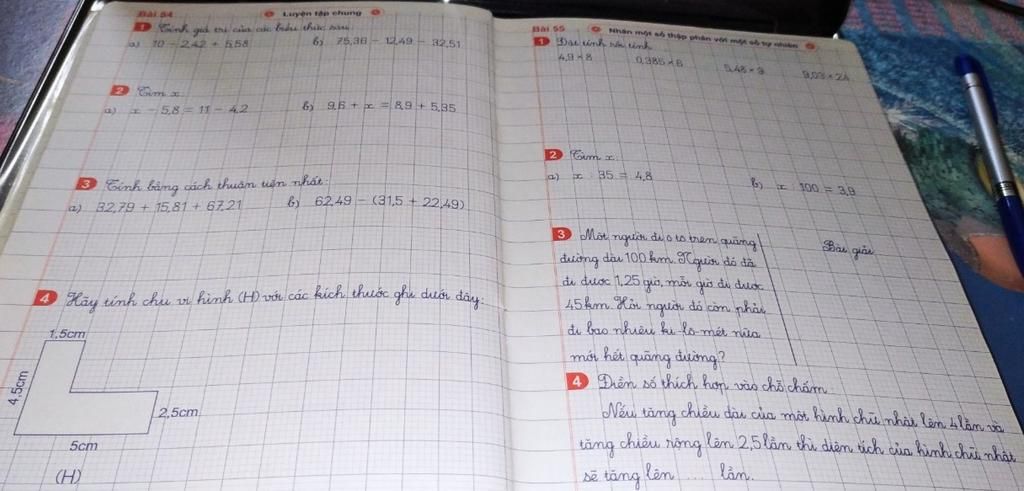 Bài 54
Luyện tập chung
1 Tính giá trị của các biểu thức sau:
a) 10 - 2,42 + 5,58 b) 75,36 - 12,49 - 32,51
2 Tìm x:
a) x - 5,8 = 11 - 4,2 b) 9,6 + x = 8,9 + 5,35
3 Tính bằng cách thuận tiện nhất:
a) 32,79 + 15,81 + 67,21 b) 62,49 - (31,5 + 22,49)
4 Hãy tính chu vi hình (H) với các kích thước ghi dưới đây:
1,5cm
4,5cm
2,5cm
5cm
(H)
Bài 55
Nhân một số thập phân với một số tự nhiên
1 Đặt tính rồi tính
4,9 × 8 0,385 × 6 5,48 × 9 9,03 × 24
2 Tìm x:
a) x : 35 = 4,8 b) x : 100 = 3,9
3 Một người đi ô tô trên quãng
đường dài 100km. Người đó đã
đi được 1,25 giờ, mỗi giờ đi được
45km. Hỏi người đó còn phải
đi bao nhiêu ki-lô-mét nữa
mới hết quãng đường?
Bài giải
4 Điền số thích hợp vào chỗ chấm
Nếu tăng chiều dài của một hình chữ nhật lên 4 lần và
tăng chiều rộng lên 2,5 lần thì diện tích của hình chữ nhật
sẽ tăng lên ... lần.